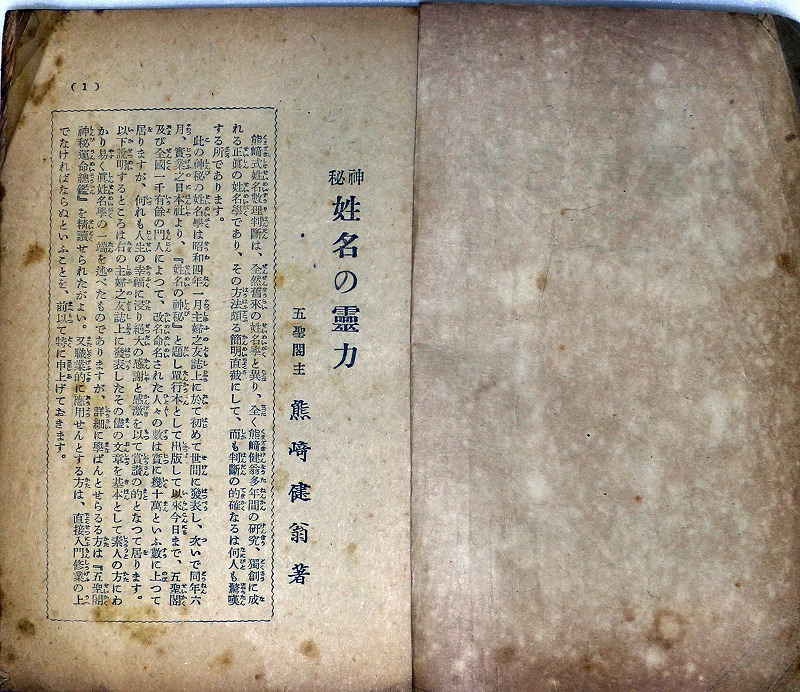 (1)
神秘 姓名の靈力
五聖閣主 熊﨑健翁著
熊﨑式姓名數理判斷は、全然舊來の姓名學と異り、全く熊﨑健翁多年間の研究、獨創に成
れる正眞の姓名學であり、その方法頗る簡明直截にして、而も判斷の的確なるは何人も驚嘆
する所であります。
此の神秘の姓名學は昭和四年一月主婦之友誌上に於て初めて世間に發表し、次いで同年六
月、實業之日本社より、『姓名の神秘』と題し單行本として出版して以來今日まで、五聖閣
及び全國一千有餘の門人によつて、改名命名された人々の數は實に幾十萬といふ數に上つて
居りますが、何れも人生の幸福に浸り絕大の感謝と感激を以て賞讚の的となつて居ります。
以下說明するところは右の主婦之友誌上に發表したその儘の文章を基本として素人の方にわ
かり易く眞姓名學の一端を述べたものでありますが、詳細に學ばんとせらるる方は『五聖閣
神秘運命總鑑』を精讀せられたがよい。又職業的に應用せんとする方は、直接入門修業の上
でなければならぬといふことを、前以て特に申上げておきます。